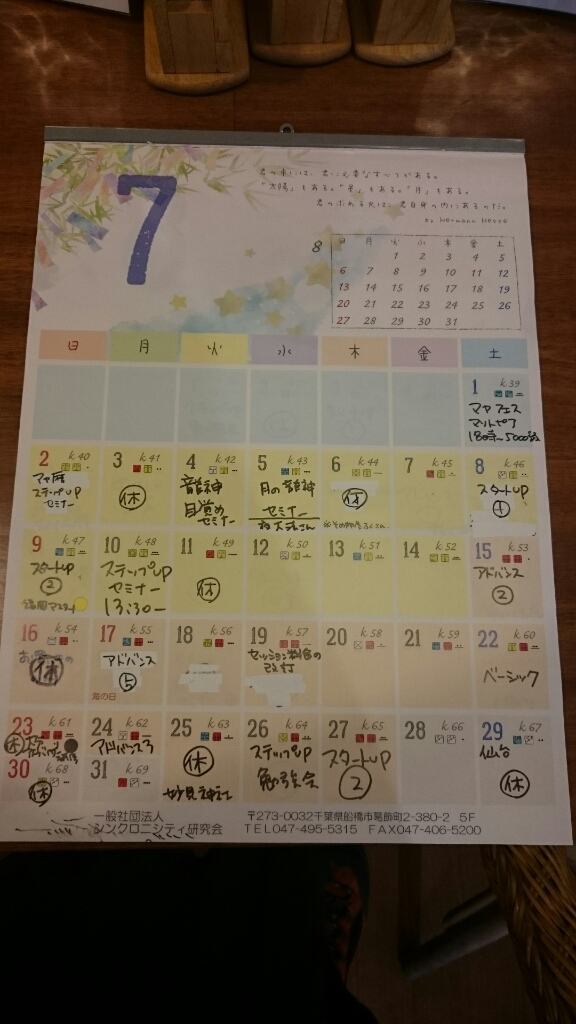 7
君の求める光は、君自身の内にあるのだ。
by Hermann Hesse
8
日 月 火 水 木 金 土
1 2 3 4 5
6 7 8 9 10 11 12
13 14 15 16 17 18 19
20 21 22 23 24 25 26
27 28 29 30 31
日 月 火 水 木 金 土
1 k.39
マヤフェス
18時~
2 k.40
ステップUP
セミナー
3 k.41
休
4 k.42
龍神
目覚め
セミナー
5 k.43
月の龍神
セミナー
6 k.44
休
7 k.45
8 k.46
スタートUP
①
9 k.47
スタートUP
②
10 k.48
ステップUP
セミナー
13:30ー
11 k.49
休
12 k.50
13 k.51
14 k.52
15 k.53
アドバンス
②
16 k.54
休
17 k.55
アドバンス
⑤
海の日
18 k.56
19 k.57
セッション料金の
改訂
20 k.58
21 k.59
22 k.60
ベーシック
23 k.61
休
24 k.62
アドバンス
25 k.63
休
妙見神社
26 k.64
ステップUP
勉強会
27 k.65
スタートUP
②
28 k.66
29 k.67
仙台
休
30 k.68
休
31 k.69
一般社団法人
シンクロニシティ研究会
〒273-0032千葉県船橋市葛飾町2-380-2 5F
TEL047-495-5315 FAX047-406-5200